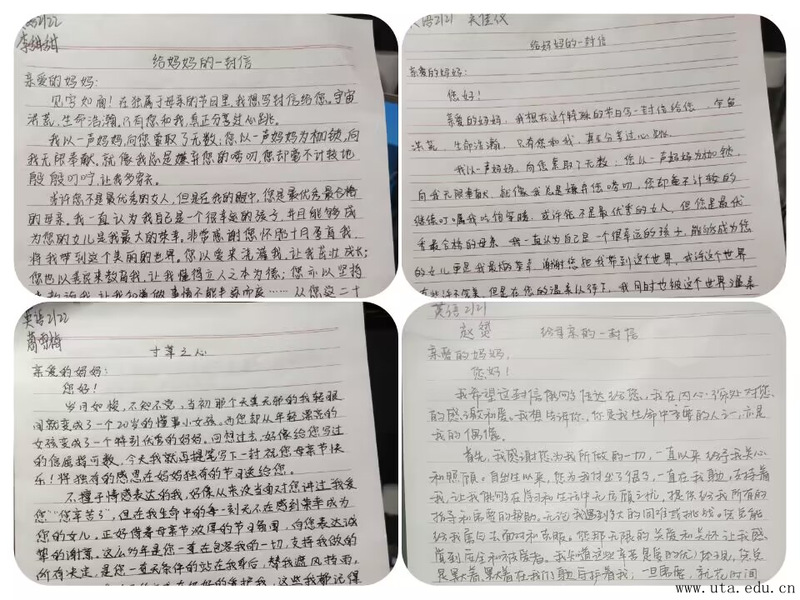 英语2122
李甜甜
给妈妈的一封信
亲爱的妈妈:
见字如面!在独属于母亲的节日里,我想写封信给您。宇宙
洪荒,生命浩瀚,只有您和我,真正分享过心跳。
我以一声妈妈,向您索取了无数;您以一声妈妈为枷锁,向
我无限奉献,就像我总是嫌弃您的唠叨,您却毫不计较地
殷殷叮咛,让我多穿衣。
或许您不是最优秀的女人,但是在我的眼中,您是最优秀最合格
的母亲。我一直认为我自己是一个很幸运的孩子,并且能够成
为您的女儿是我最大的荣幸。非常感谢您怀胎十月含辛,
将我带到这个美丽的世界。您以爱来浇灌我,让我茁壮成长;
您也以善良来教育我,让我懂得立人之本为德;您亦以坚持
英语2121
给妈妈的一封信
亲爱的妈妈:
您好!
亲爱的妈妈,我想在这个特殊的节日写一封信给您,宇宙
洪荒,生命浩瀚,只有您和我,真正分享过心跳。
我以一声妈妈,向您索取了无数;您以一声妈妈为枷锁,
向我无限奉献,就像我总是嫌弃您唠叨,您却毫不计较的
继续叮嘱我,或许你不是最优秀的女人,但您是最优
秀最合格的母亲。我一直认为自己是一个很幸运的孩子,能够成为您
的女儿更是我最大的荣幸,谢谢您把我带到这个世界,或许这个世界
但是在您的温柔以待下,我同时也被这个世界温柔
英语2122
萧雪梅
寸草之心
亲爱的妈妈:
您好!
岁月如梭,不知不觉,当初那个天真无邪的我转眼
间就变成了一个20岁的懂事小女孩。而您却从年轻漂亮的
女孩变成了一个特别优秀的妈妈。回想过去,好像给您写过
的信屈指可数,今天我就再提笔写下一封祝您母亲节快
乐!将独有的感恩在妈妈独有的节日送给您。
不擅于情感表达的我,好像从来没当面对您讲过“我爱
您”“您辛苦了”,但在我生命中的每一刻无不在感到荣幸成为
您的女儿。正好借着母亲节浓厚的节日氛围,向您表达诚
挚的谢意。这么多年是您一直在包容我的一切,支持我做的
所有决定,是您一直无条件的站在我身后,替我遮风挡雨。
英语2121
给母亲的一封信
亲爱的妈妈,
您好!
我希望这封信能够传达给您,我在内心深处对您
的感激和爱。我想告诉你,你是我生命中重要的人之一,亦是
我的偶像。
首先,我感谢您为我所做的一切,一直以来给予我关心
和照顾。自出生以来,您为我付出了很多,一直在我身边,支持着
我,让我能够在学习和生活中无后顾之忧。提供给我所有的
指导和需要的帮助。无论我遇到多大的困难或挑战,您总能
给我
www.uta.edu.cn